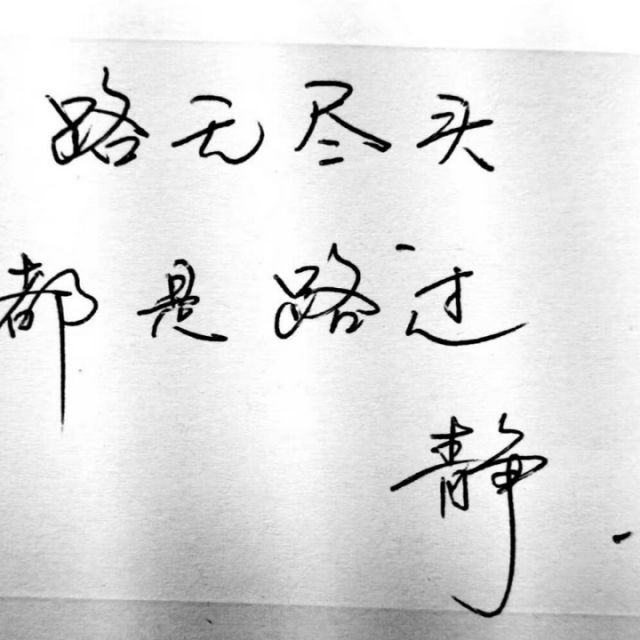 路无尽头
都是路过
静.